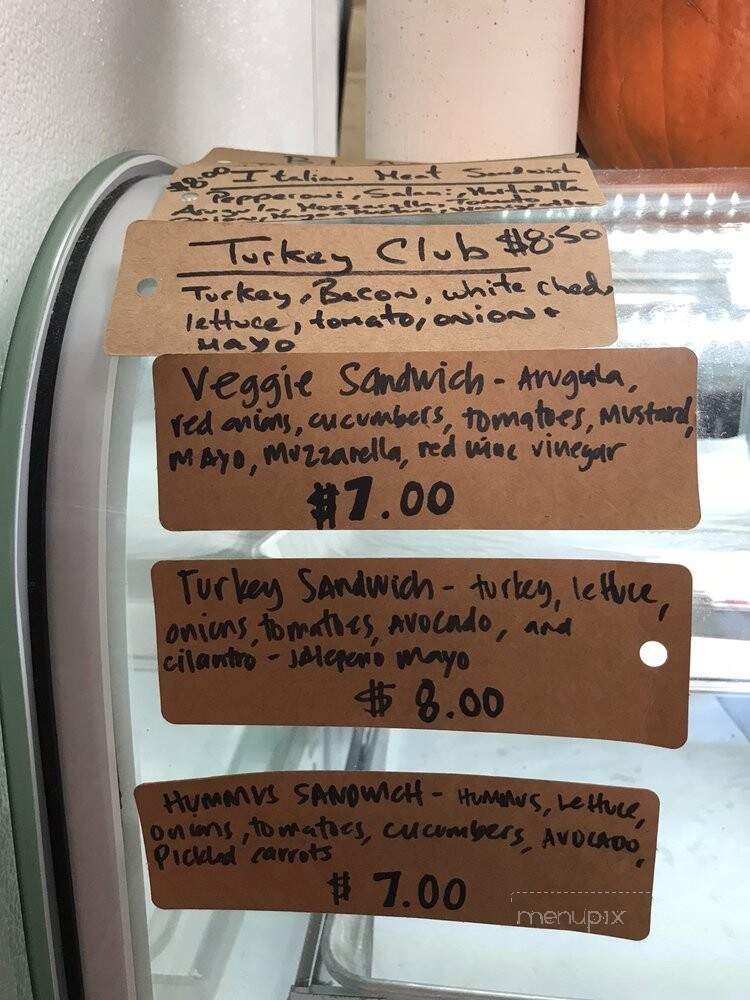 B L A
$8.00 Italian Meat Sandwich
Pepperoni, Salami, Mortadella
Mozzarella, Tomato
Turkey Club $8.50
Turkey, Bacon, white ched,
lettuce, tomato, onion +
Mayo
Veggie Sandwich - Arugula,
red onions, cucumbers, tomatoes, Mustard,
MAYO, Mozzarella, red wine vinegar
$7.00
Turkey SANdWich - turkey, lettuce,
onions, tomatoes, AVOCADO, and
cilantro - jalepeno mayo
$ 8.00
HUMMUS SANDWICH - HUMMUS, Lettuce,
onions, tomatoes, cucumbers, AVOCADO,
Pickled carrots
$ 7.00
menupix